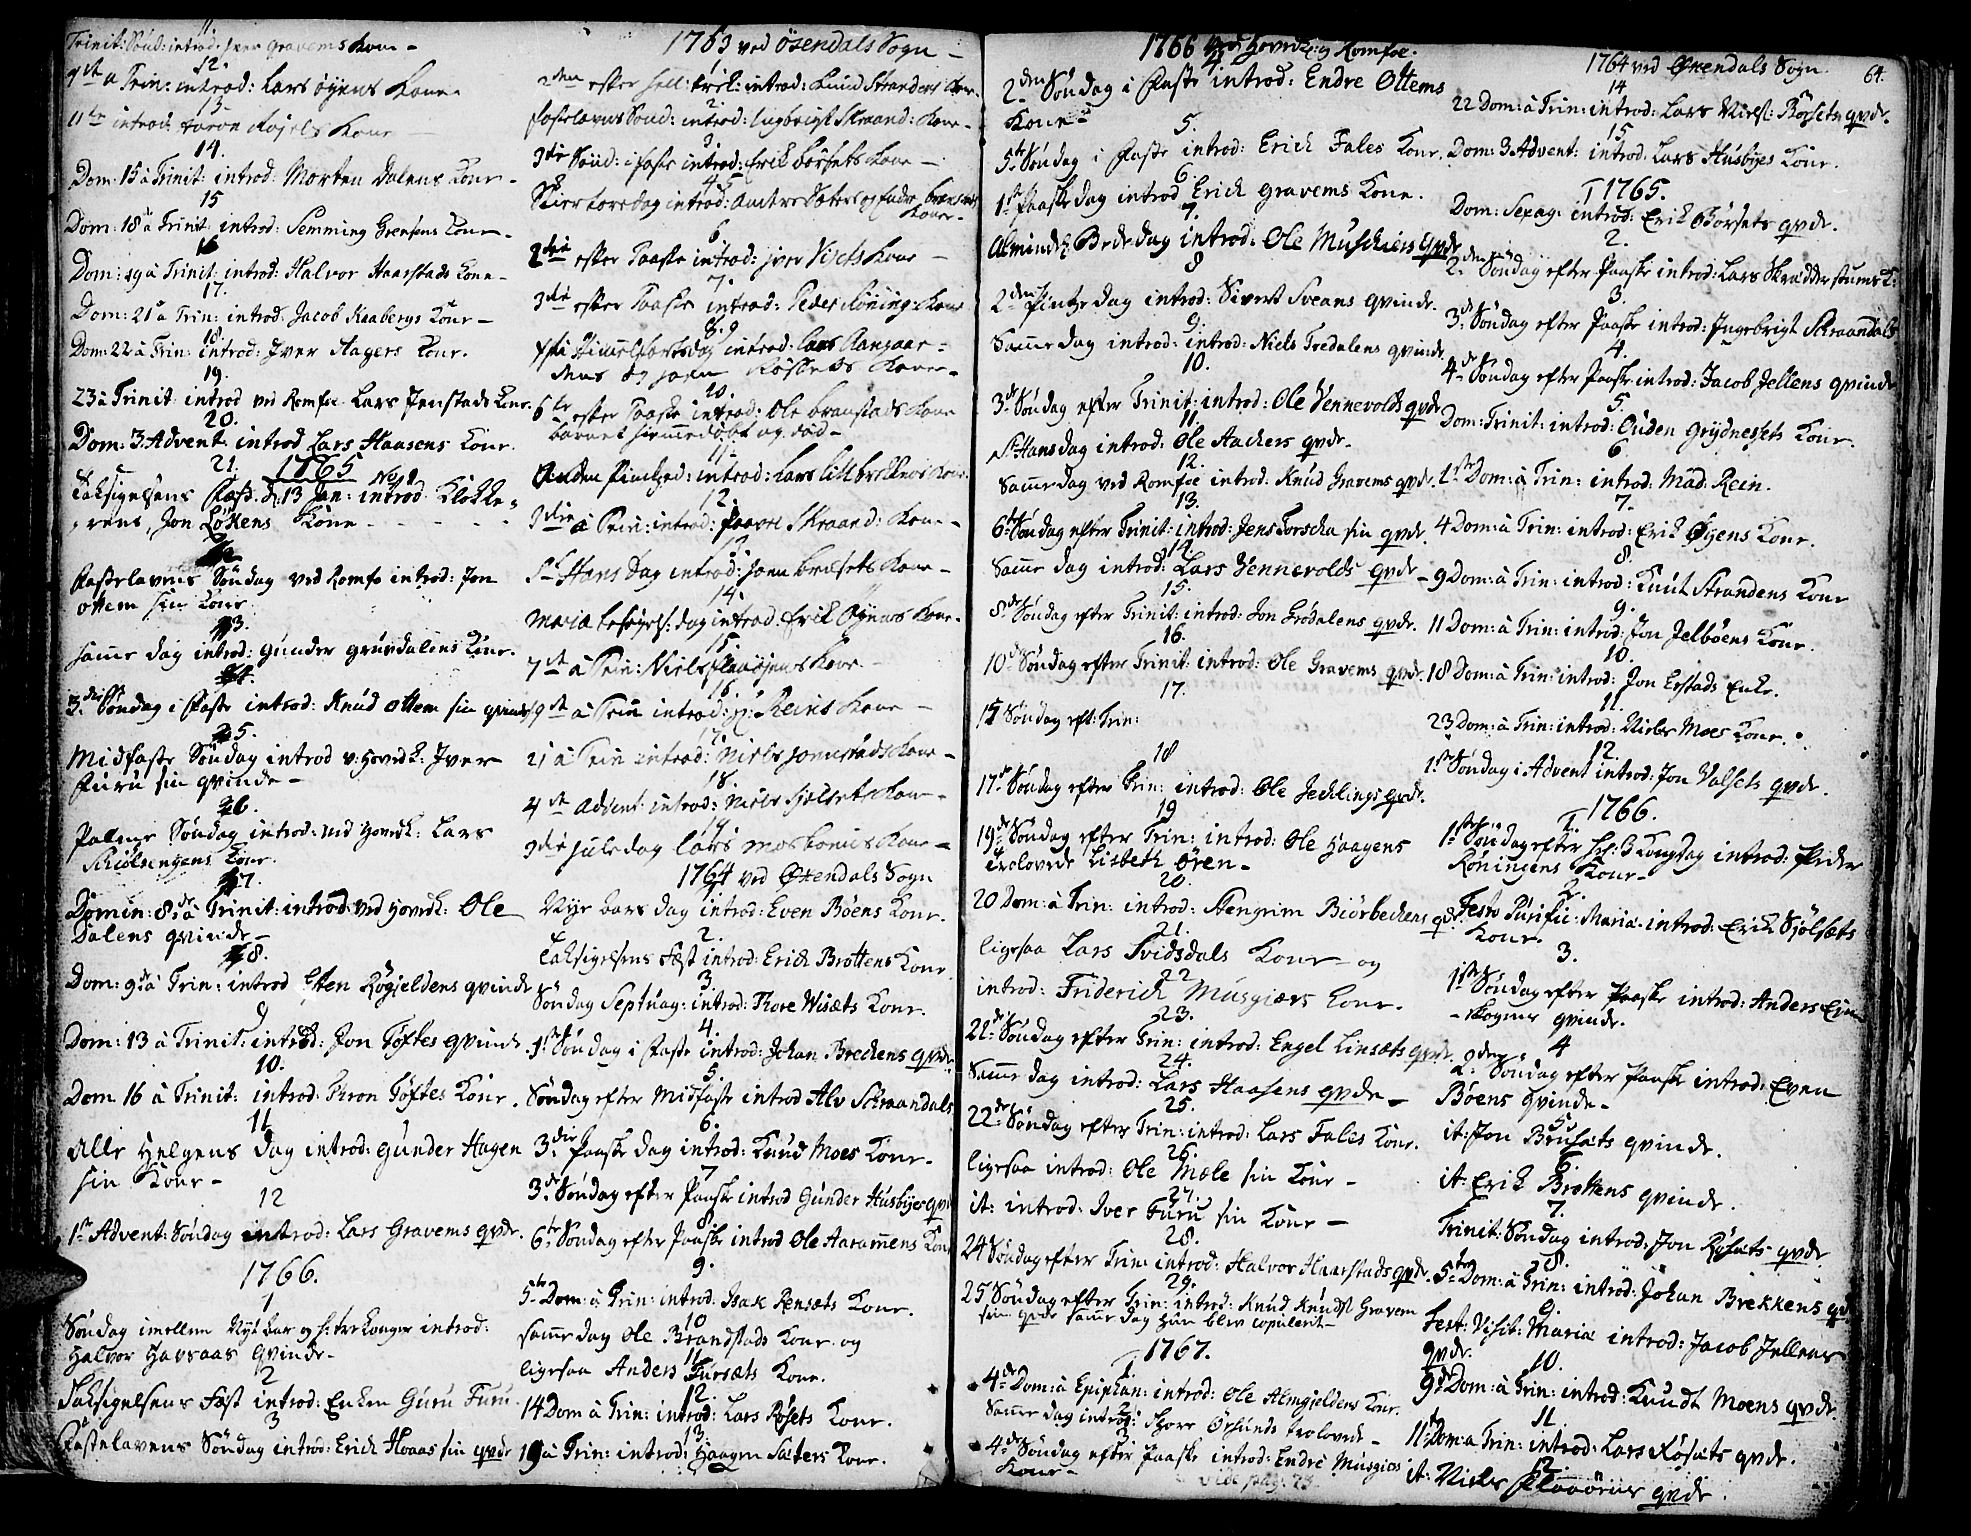 11
Trinit: Sønd: introd: Iver Gravems Kone -
12.
9de a Trin: introd: Lars Øyens Kone.
13
11te introd: Røjels Kone
14.
Dom: 15 à Trinit: introd: Morten Dalens Kone.
15
Dom: 18 à Trinit: introd: Semming Grensens Kone.
16
Dom: 19 à Trinit: introd: Halvor Haarstads Kone -
17.
Dom: 21 à Trin: introd: Jacob Raabergs Kone -
18.
Dom: 22 à Trin: introd: Iver Hagers Kone.
19.
23 à Trinit: introd ved Romfoe Lars Jenstads Kone.
20.
Dom: 3 Advent: introd Lars Haasens Kone.
21. 1765 No 1
Taksigelsens Fæst d: 13 Jan: introd: Klokke-
rens, Jon Løkkens Kone
Fastelavens Søndag ved Romfo introd: Jon
Ottem sin Kone
3.
samme dag introd: Gunder Gruvdalens Kone.
4.
3die Søndag i Faste introd: Knud Ottem sin qvinde
5.
Midfaste Søndag introd v: Hovedk: Iver
Furu sin qvinde -
6.
Palme Søndag introd: ved Hovedk: Lars
Skiølsengens Kone.
7.
Domin: 8de à Trinit: introd: ved Hovedk: Ole
Dalens qvinde -
8.
Dom: 9de à Trin: introd Esten Røgjeldens qvinde
9
Dom: 13 à Trinit: introd: Jon Toftes qvinde
10.
Dom 16 à Trinit: introd: Thron Toftes Kone.
11
Alle Helgens Dag introd: Gunder Hagen
sin Kone -
12
1ste Advent: Søndag introd: Lars Gravems qvde.
1766.
1
Søndag imellem Nyt Aar og h: tre konger introd:
Halvor Havsaas qvinde -
2
Taksigelsens Fæst introd: Enken Guru Furu
3
Fastelavens Søndag introd: Erich Hoaas sin qvde
1763 ved Øxendals Sogn -
1
2den efter Hell: trek: introd: Knud Strandens Kone.
2.
Fastelavens Sond: introd: Ingbrigt Skraand: Kone -
3.
3die Sønd: i Faste introd: Erik Børsets Kone -
4. 5
Skiertorsdag introd: Anders Sæters og Peder
Kone -
6
2die efter Paaske introd: Iver Visets Kone -
7.
3die efter Paaske introd: Peder Røning: Kone
8. 9
Chri Himmelfartsdag introd: Lars Rangaar-
dens og Joen Røssets Kone.
10.
6te efter Paaske introd: Ole Branstads Kone
barnet hiemmedøbt og død -
11.
Anden Pintzed: introd: Lars Lillbrekkens Kone.
12.
3die à Trin: introd: Paavel Skraand: Kone -
13.
St Hans Dag introd: Joen Brusets Kone -
14.
Mariæ besøgels: dag introd: Erik Øyens Kone.
15.
7de à Trin: Niels Flaaøyens Kone -
16.
19de à Trin introd: Hr: Reins Kone -
17.
21 à Trin introd: Niels Jonstads Kone -
18.
4de Advent: introd: Niels Siølsets Kone -
19
3die Juledag Lars Mosboens Kone -
1764 ved Øxendals Sogn
1
Nyt aars dag introd: Even Bøens Kone.
2.
Taksigelsens Fæst introd: Erich Brottens Kone
3.
Søndag Septuag: introd: Thore Wisæts Kone.
4.
1ste Søndag i Faste introd: Johan Breckens qvde.
5.
Søndag efter Midfaste introd Alv Schraandals
6.
3die Paaske dag introd: Knud Moes Kone.
7
3de Søndag efter Paaske introd Gunder Husbyes qvde
8
6te Søndag efter Paaske introd Ole Aarammens Kone
9.
5te Dom: à Trin: introd: Isak Rensæts Kone.
10
samme dag Ole Brandstads Kone og
11
ligesaa Anders Fursæts Kone.
12.
14 Dom à Trin: introd: Lars Røsets Kone.
13.
19 à Trin: introd: Haagen Sæters Kone.
1766 ved Hovedk: og Romfoe.
4.
2den Søndag i Faste introd: Endre Ottems
Kone -
5.
5te Søndag i Faste introd: Erich Fales Kone.
6.
1ste Paaskedag introd Erick Gravems Kone.
7.
Almindel: Bededag introd: Ole Muschiers qvde
8
2den Pintzedag introd: Sivert Sveans qvinde.
9.
Samme dag introd: introd: Niels Tredalens qvinde.
10.
3de Søndag efter Trinit: introd: Ole Vennevolds qvde
11.
St Hansdag introd: Ole Aackers qvde.
12.
Samme dag ved Romfoe introd: Knud Gravems qvde.
13.
6te Søndag efter Trinit: introd: Jens Torscha sin qvde.
14.
Samme dag introd: Lars Vennevolds qvde -
15.
8de Søndag efter Trinit: introd: Jon Grødalens qvde.
16.
10de Søndag efter Trinit: introd: Ole Gravems qvde.
17.
15 Søndag eft: Trin:
18
17de Søndag efter Trin: introd: Ole Jechlings qvde.
19
19de Søndag efter Trin: introd: Ole Haagens
trolovede Lisbeth Øren -
20.
20 Dom: à Trin: introd: Stengrim Biørbeckens qvde.
21.
ligesaa Lars Svidsdals Kone - og
22
introd: Friderich Musgiærs Kone.
23.
21de Søndag efter Trin: introd: Engel Linsæts qvde.
24.
Samme dag introd: Lars Haasens qvde -
25.
22de Søndag efter Trin: introd: Lars Fales Kone.
26.
ligesaa introd: Ole Mæle sin Kone -
27.
it: introd: Iver Furu sin Kone -
28.
24 Søndag efter Trin: introd: Halvor Haarstads qvde.
29.
25 Søndag efter Trin: introd: Knud Knuds: Gravem
sin qvde samme dag hun blev copulerit -
1767.
1.
4de Dom: à Epiphan: introd: Ole Almgjeldens Kone.
2
Samme dag introd: Thore Ørsunds trolovede -
3
4de Søndag efter Paaske introd: Endre Musgiers
Kone - Vide pag: 73
1764 ved Øxendals Sogn. 64.
14
22 Dom: à Trin: introd: Lars Niels: Børsets qvde.
15
Dom: 3 Advent: introd: Lars Husbyes Kone.
1765.
1
Dom: Sexag: introd: Erik Børsets qvde.
2.
2den Søndag efter Paaske introd: Lars Skrædderstuens K:
3.
3de Søndag efter Paaske introd: Ingebrigt Schraandals
4.
4de Søndag efter Paaske introd: Jacob Jellens qvinde
5.
Dom: Trinit: introd: Ouden Grydnessets Kone.
6
1ste Dom: à Trin: introd: Mad: Rein.
7.
4 Dom: à Trin: introd: Erik Øyens Kone.
8.
9 Dom: à Trin: introd: Knut Strandens Kone
9.
11 Dom: à Trin: introd: Jon Jelbøens Kone.
10.
18 Dom: à Trin: introd: Jon Erstads Enke.
11.
23 Dom: à Trin: introd: Niels Moes Kone.
12.
1ste Søndag i Advent introd: Jon Valsets qvde.
1766.
1.
1ste Søndag efter Hel: 3 Kongdag introd: Peder
Røningens Kone -
2.
Festo Purific: Mariæ introd: Erich Sjølsæts
Kone.
3.
1ste Søndag efter Paaske introd: Anders
-skogens qvinde.
4
2den Søndag efter Paaske introd: Even
Bøens qvinde -
5
it: Jon Brusæts qvinde.
6.
it: Erik Brottens qvinde.
7.
Trinit: Søndag introd: Jon Røsæts qvde
8.
5te Dom: à Trin: introd: Johan Brekkens qvde
9.
Fest: Visit: Mariæ introd: Jacob Jellens
qvde.
10.
9de Dom: à Trin: introd: Knudt Moens qvde.
11.
11te Dom: à Trin: introd: Lars Røsæts qvde.
12
it: Niels Flaaøens qvde.